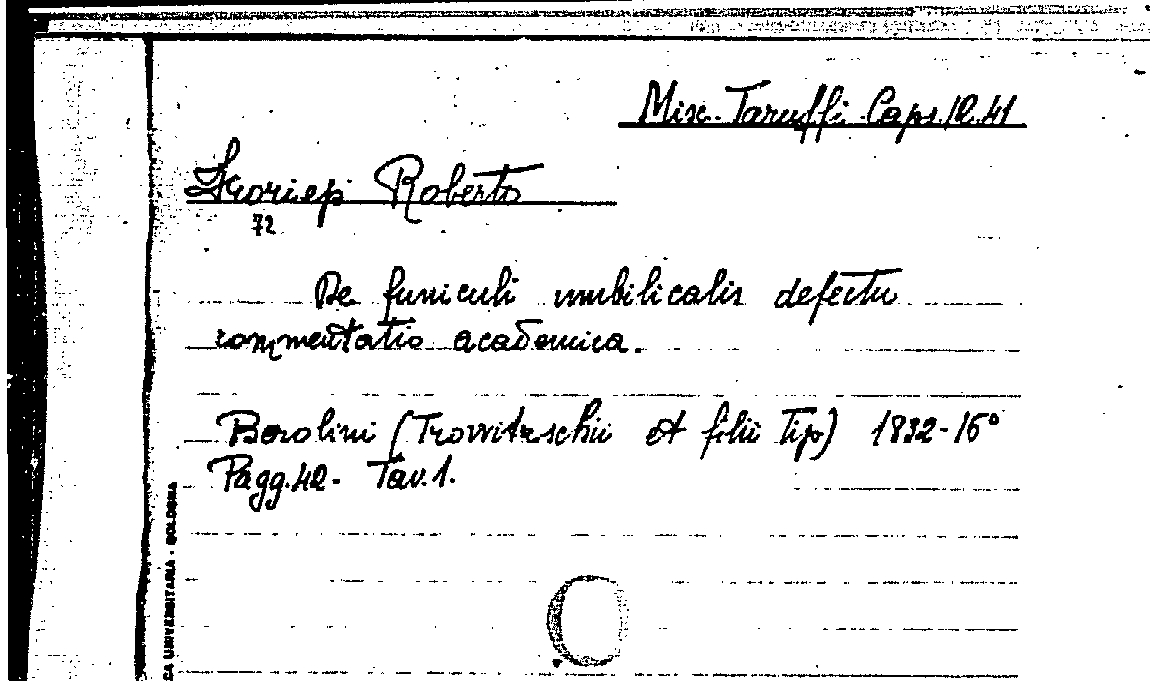 Misc. Taruffi Caps. 12. 41
Froriep Roberto
72
De funiculi umbilicalis defectu
commentatio academica.
Berolini (Trowitzschii et filii Tip) 1832-16°
Pagg. 42 - Tav. 1.
CA UNIVERSITARIA - BOLOGNA